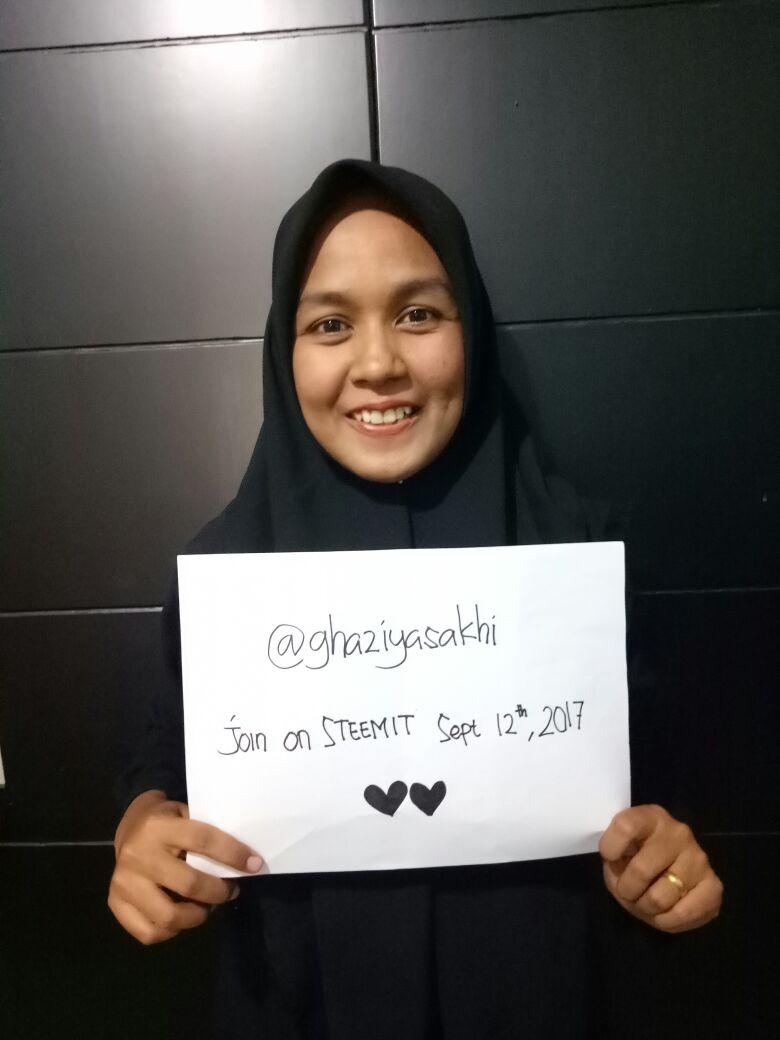 @ghaziyasakhi
join on STEEMIT Sept 12th, 2017